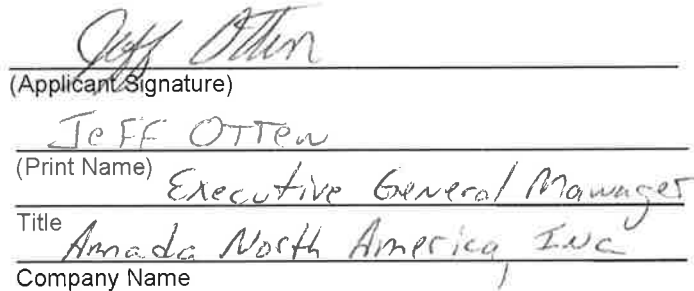 Jeff Otten
(Applicant Signature)
Jeff Otten
(Print Name)
Executive General Manager
Title
Amada North America, Inc
Company Name